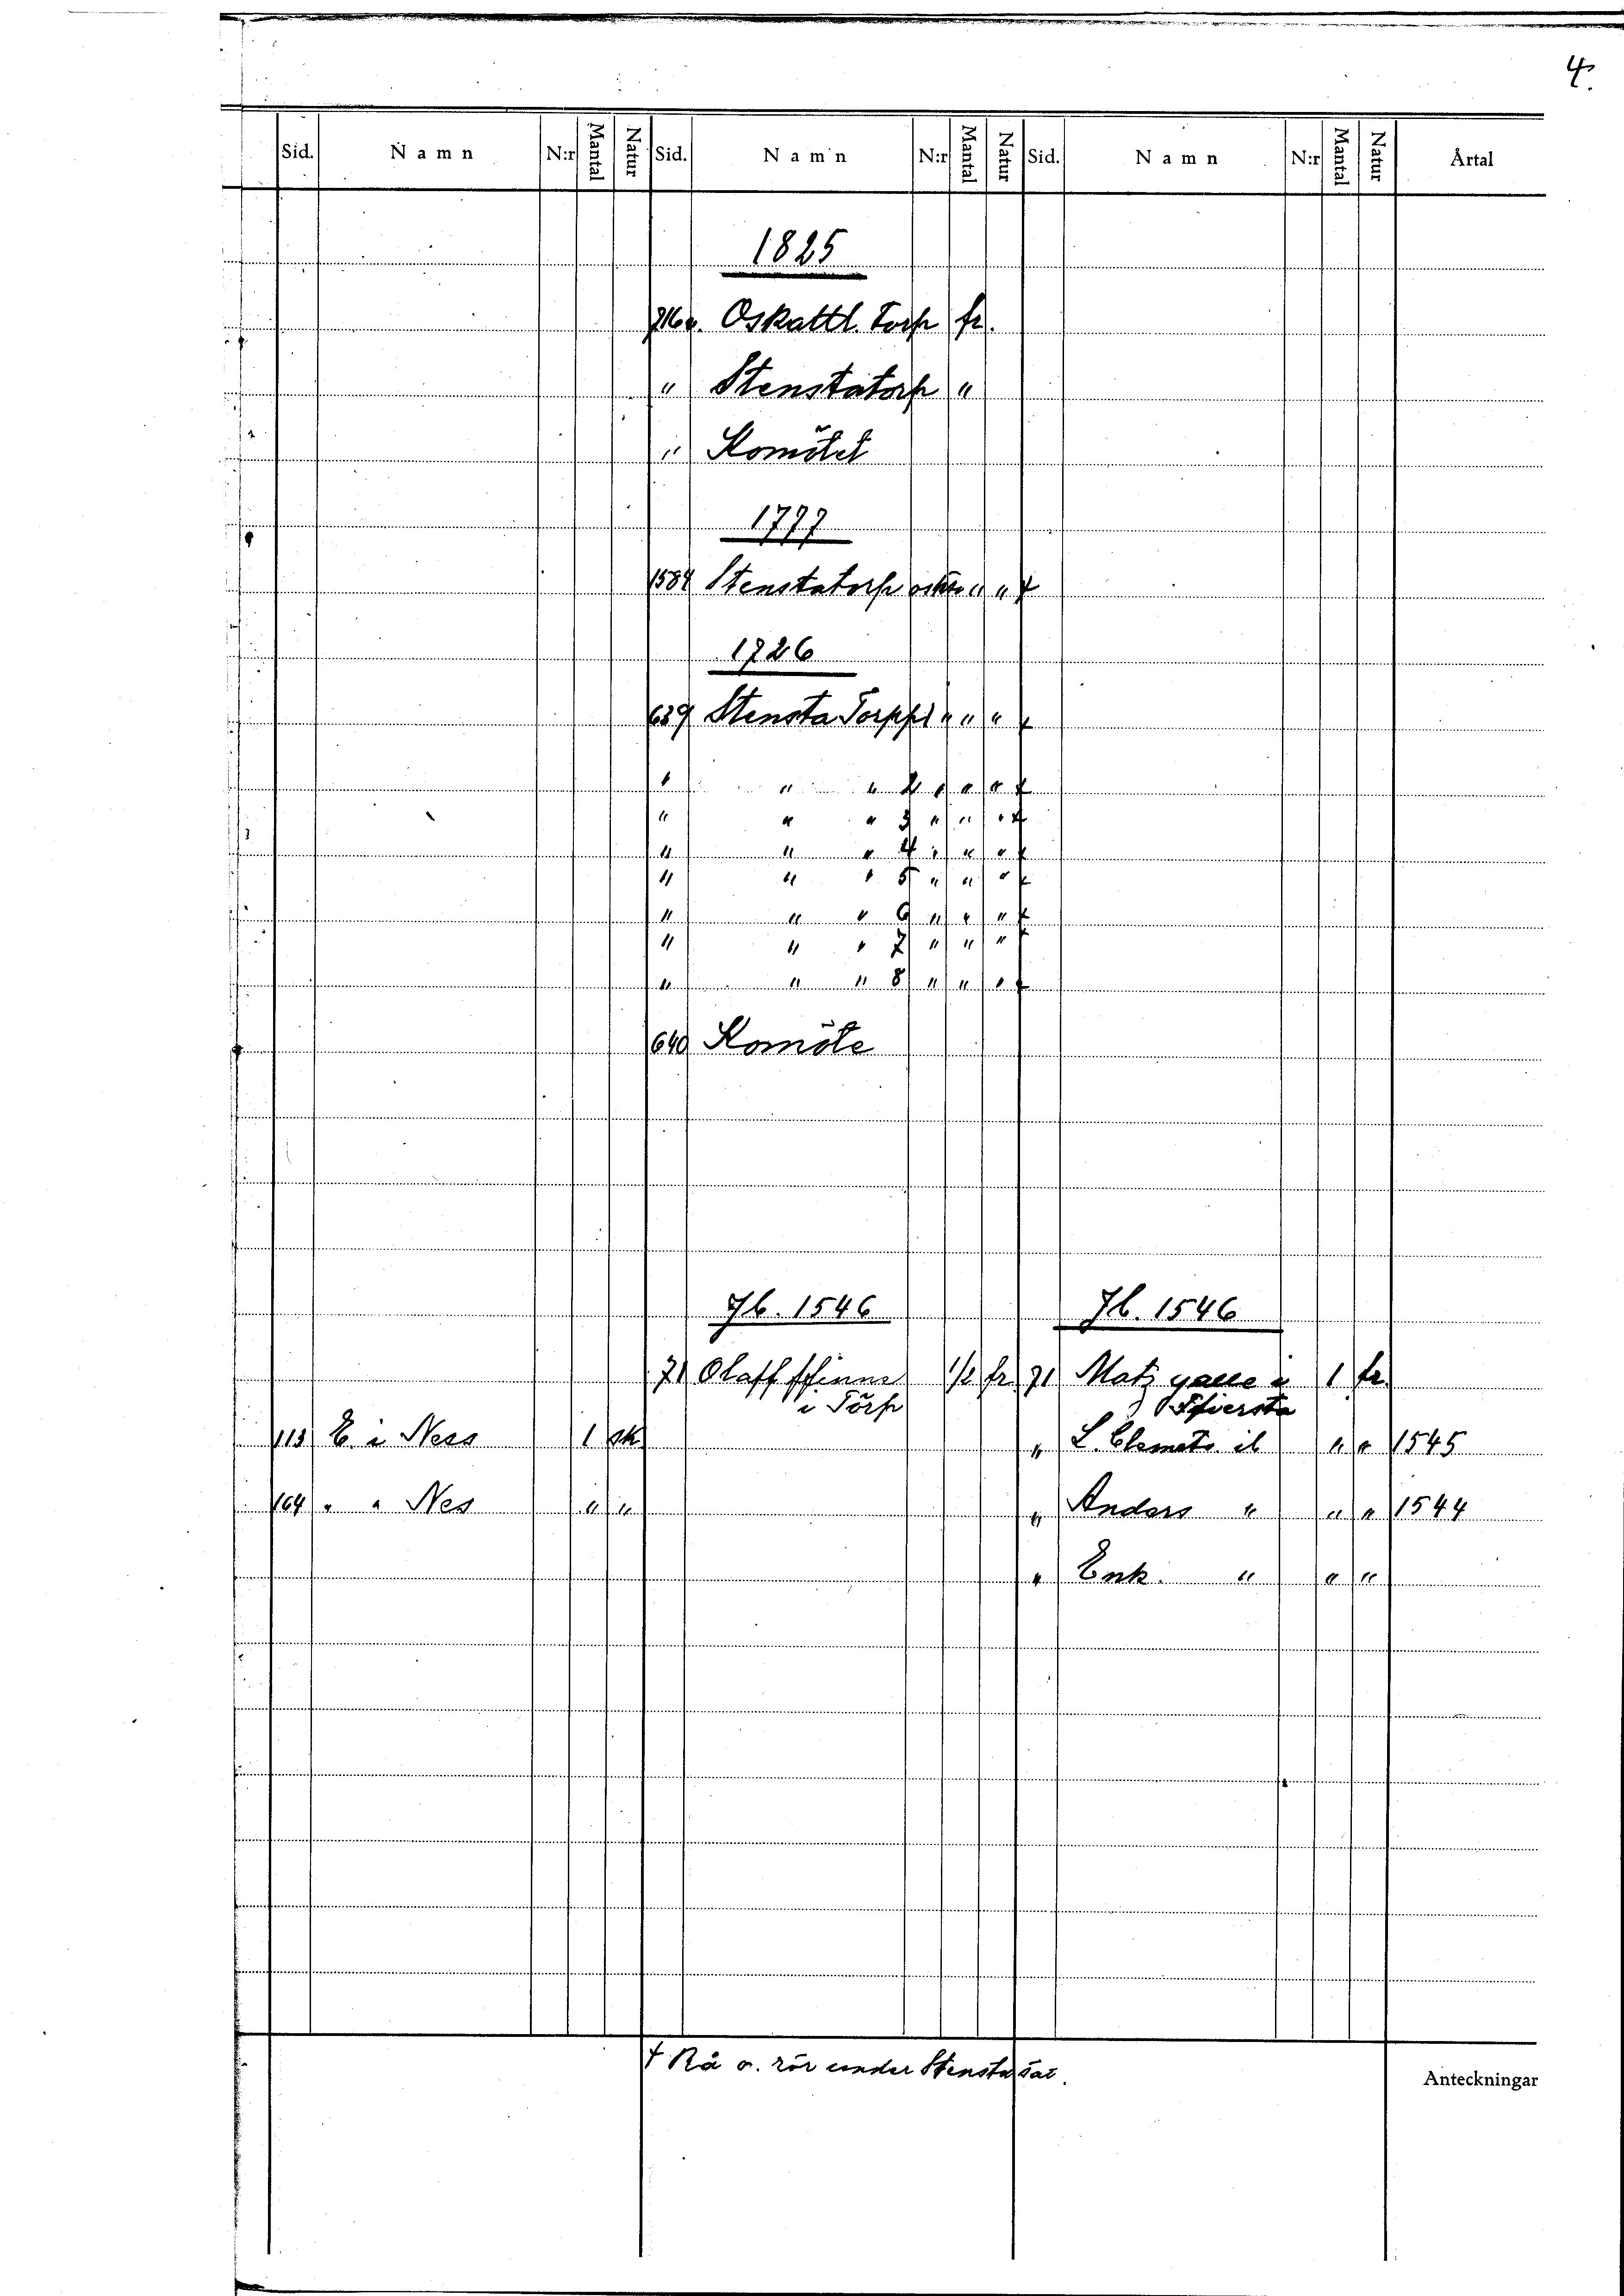 4.
Sid. Namn N:r Mantal Natur Sid. Namn N:r Mantal Natur Sid. Namn N:r Mantal Natur Årtal
1825
716 v. Oskattl. Torp fr.
" Stenstatorp "
" Komötet
1777
1584 Stenstatorp " " +
1726
639 Stensta Torpp 1 " " " +
" " " 2 " " " +
" " " 3 " " " +
" " " 4 " " " +
" " " 5 " " " +
" " " 6 " " " +
" " " 7 " " " +
" " " 8 " " " +
640 Komöte
Jb. 1546 Jb. 1546
71 Olaff ffinne 1/2 fr. 71 Matz i 1 fr.
i Torp Ffiersta
113 E. i Ness 1 sk " L. Clemets ib " " 1545
164 " " Nes " " " Anders " " " 1544
" Enk. " " "
+ Rå o. rör under Stensta
Anteckningar